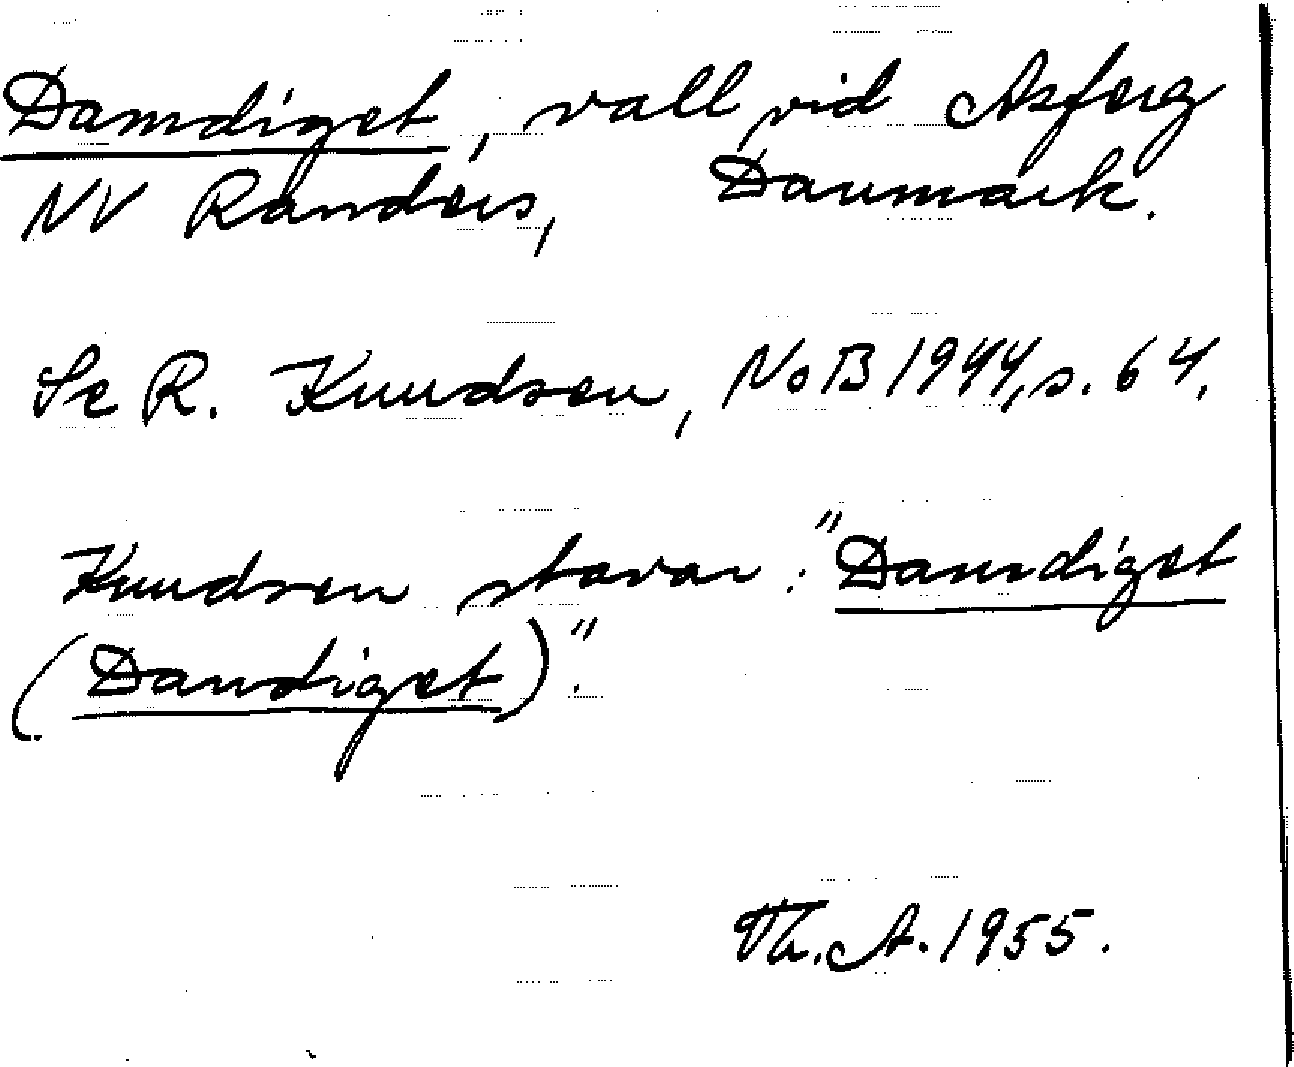 Damdiget, vall vid Asferg
NV Randers, Danmark.
Se R. Knudsen, NoB 1944, s. 64.
Knudsen stavar: "Damdiget
(Dandiget)".
Th. A. 1955.